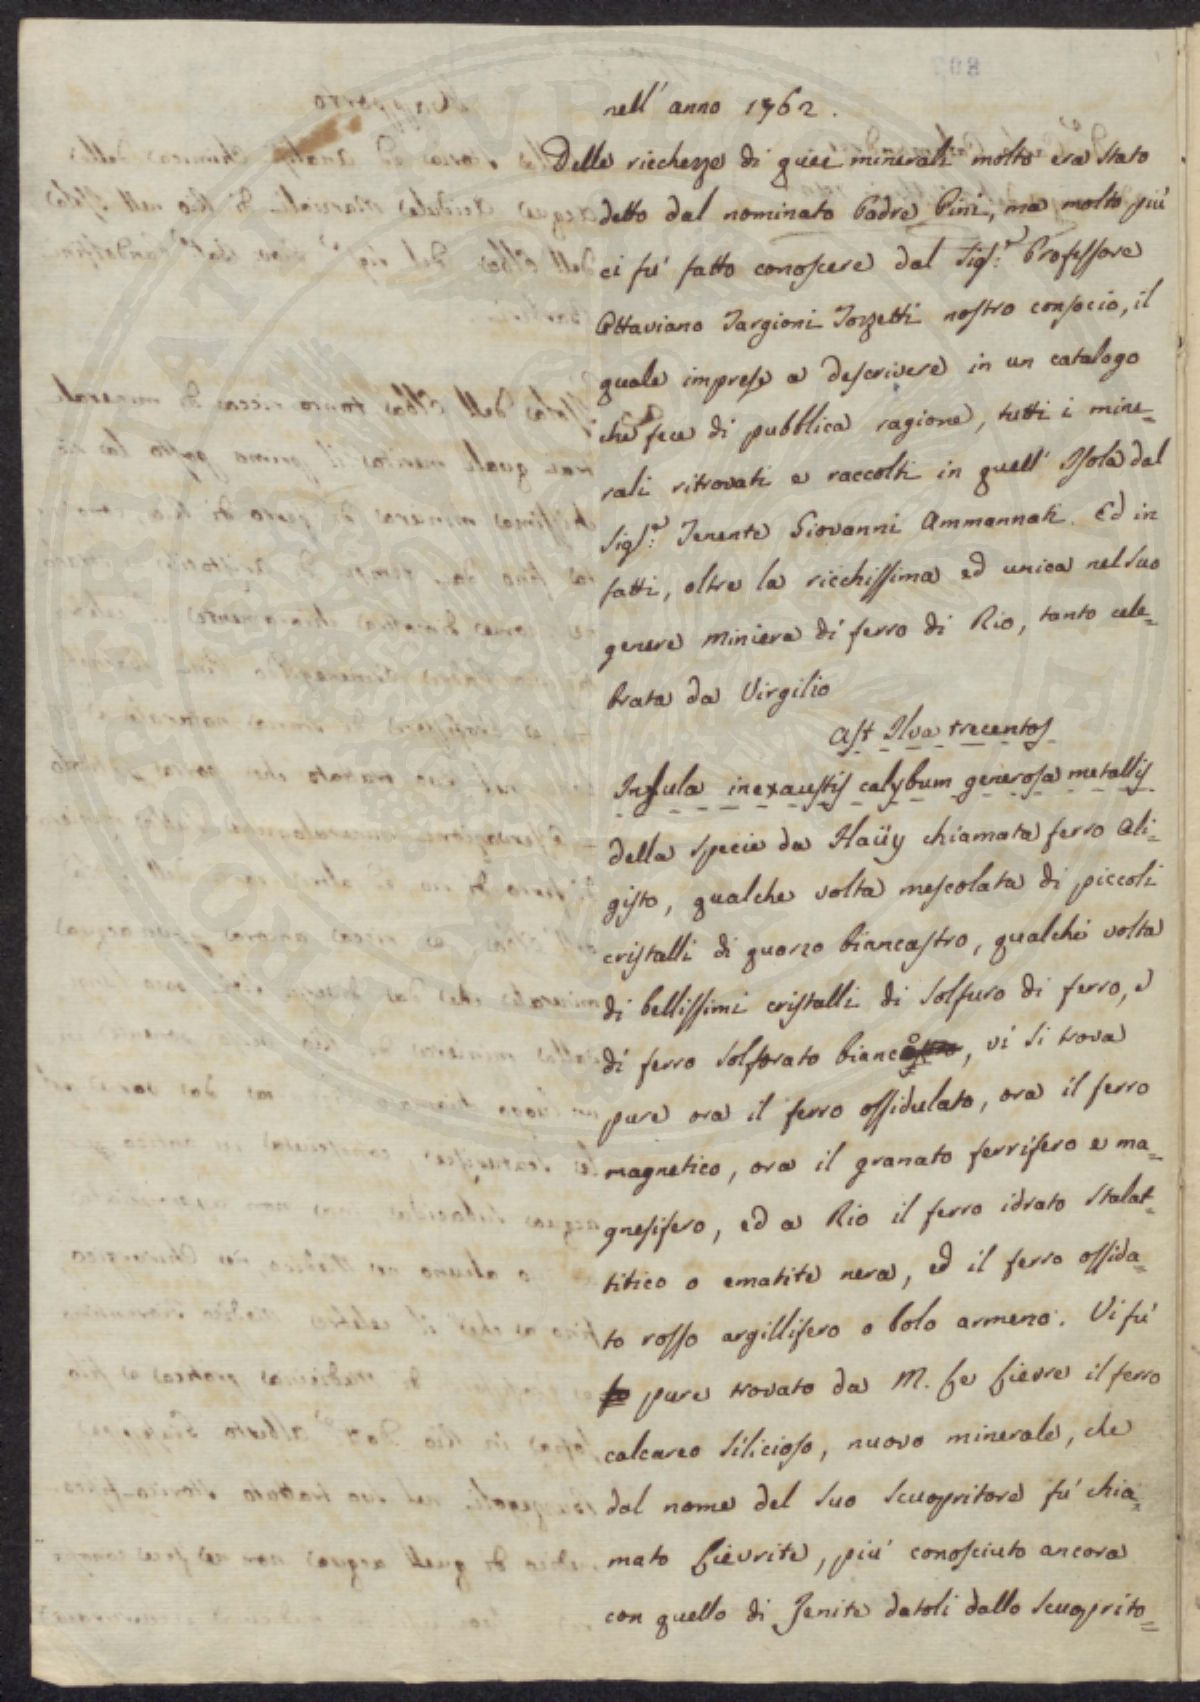 nell' anno 1762.
Delle ricchezze di quei minerali molto era stato
detto dal nominato Padre Pini, ma molto più
ci fu' fatto conoscere dal Sig.r Professore
Ottaviano Targioni Tozzetti nostro consocio, il
quale imprese a descrivere in un catalogo
che fece di pubblica ragione, tutti i mine=
rali ritrovati e raccolti in quell' Isola dal
Sig.r Tenente Giovanni Ammannati. Ed in
fatti, oltre la ricchissima ed unica nel suo
genere miniera di ferro di Rio, tanto cele=
brata da Virgilio
Ast Ilva trecentos
Insula inexaustis calybum generosa metallis
della specie da Haüy chiamata ferro oli=
gisto, qualche volta mescolata di piccoli
cristalli di quarzo biancastro, qualche volta
di bellissimi cristalli di solfuro di ferro, e
di ferro solforato bianco, vi si trova
pure ora il ferro ossidulato, ora il ferro
magnetico, ora il granato ferrifero e ma=
gnesifero, ed a Rio il ferro idrato stalat=
titico o ematite nera, ed il ferro ossida=
to rosso argillifero o bolo armeno. Vi fu'
pure trovato da M. Le Lievre il ferro
calcareo silicioso, nuovo minerale, che
dal nome del suo scuopritore fu' chia=
mato Lievrite, piu' conosciuto ancora
con quello di Jenite datoli dallo scuoprito=